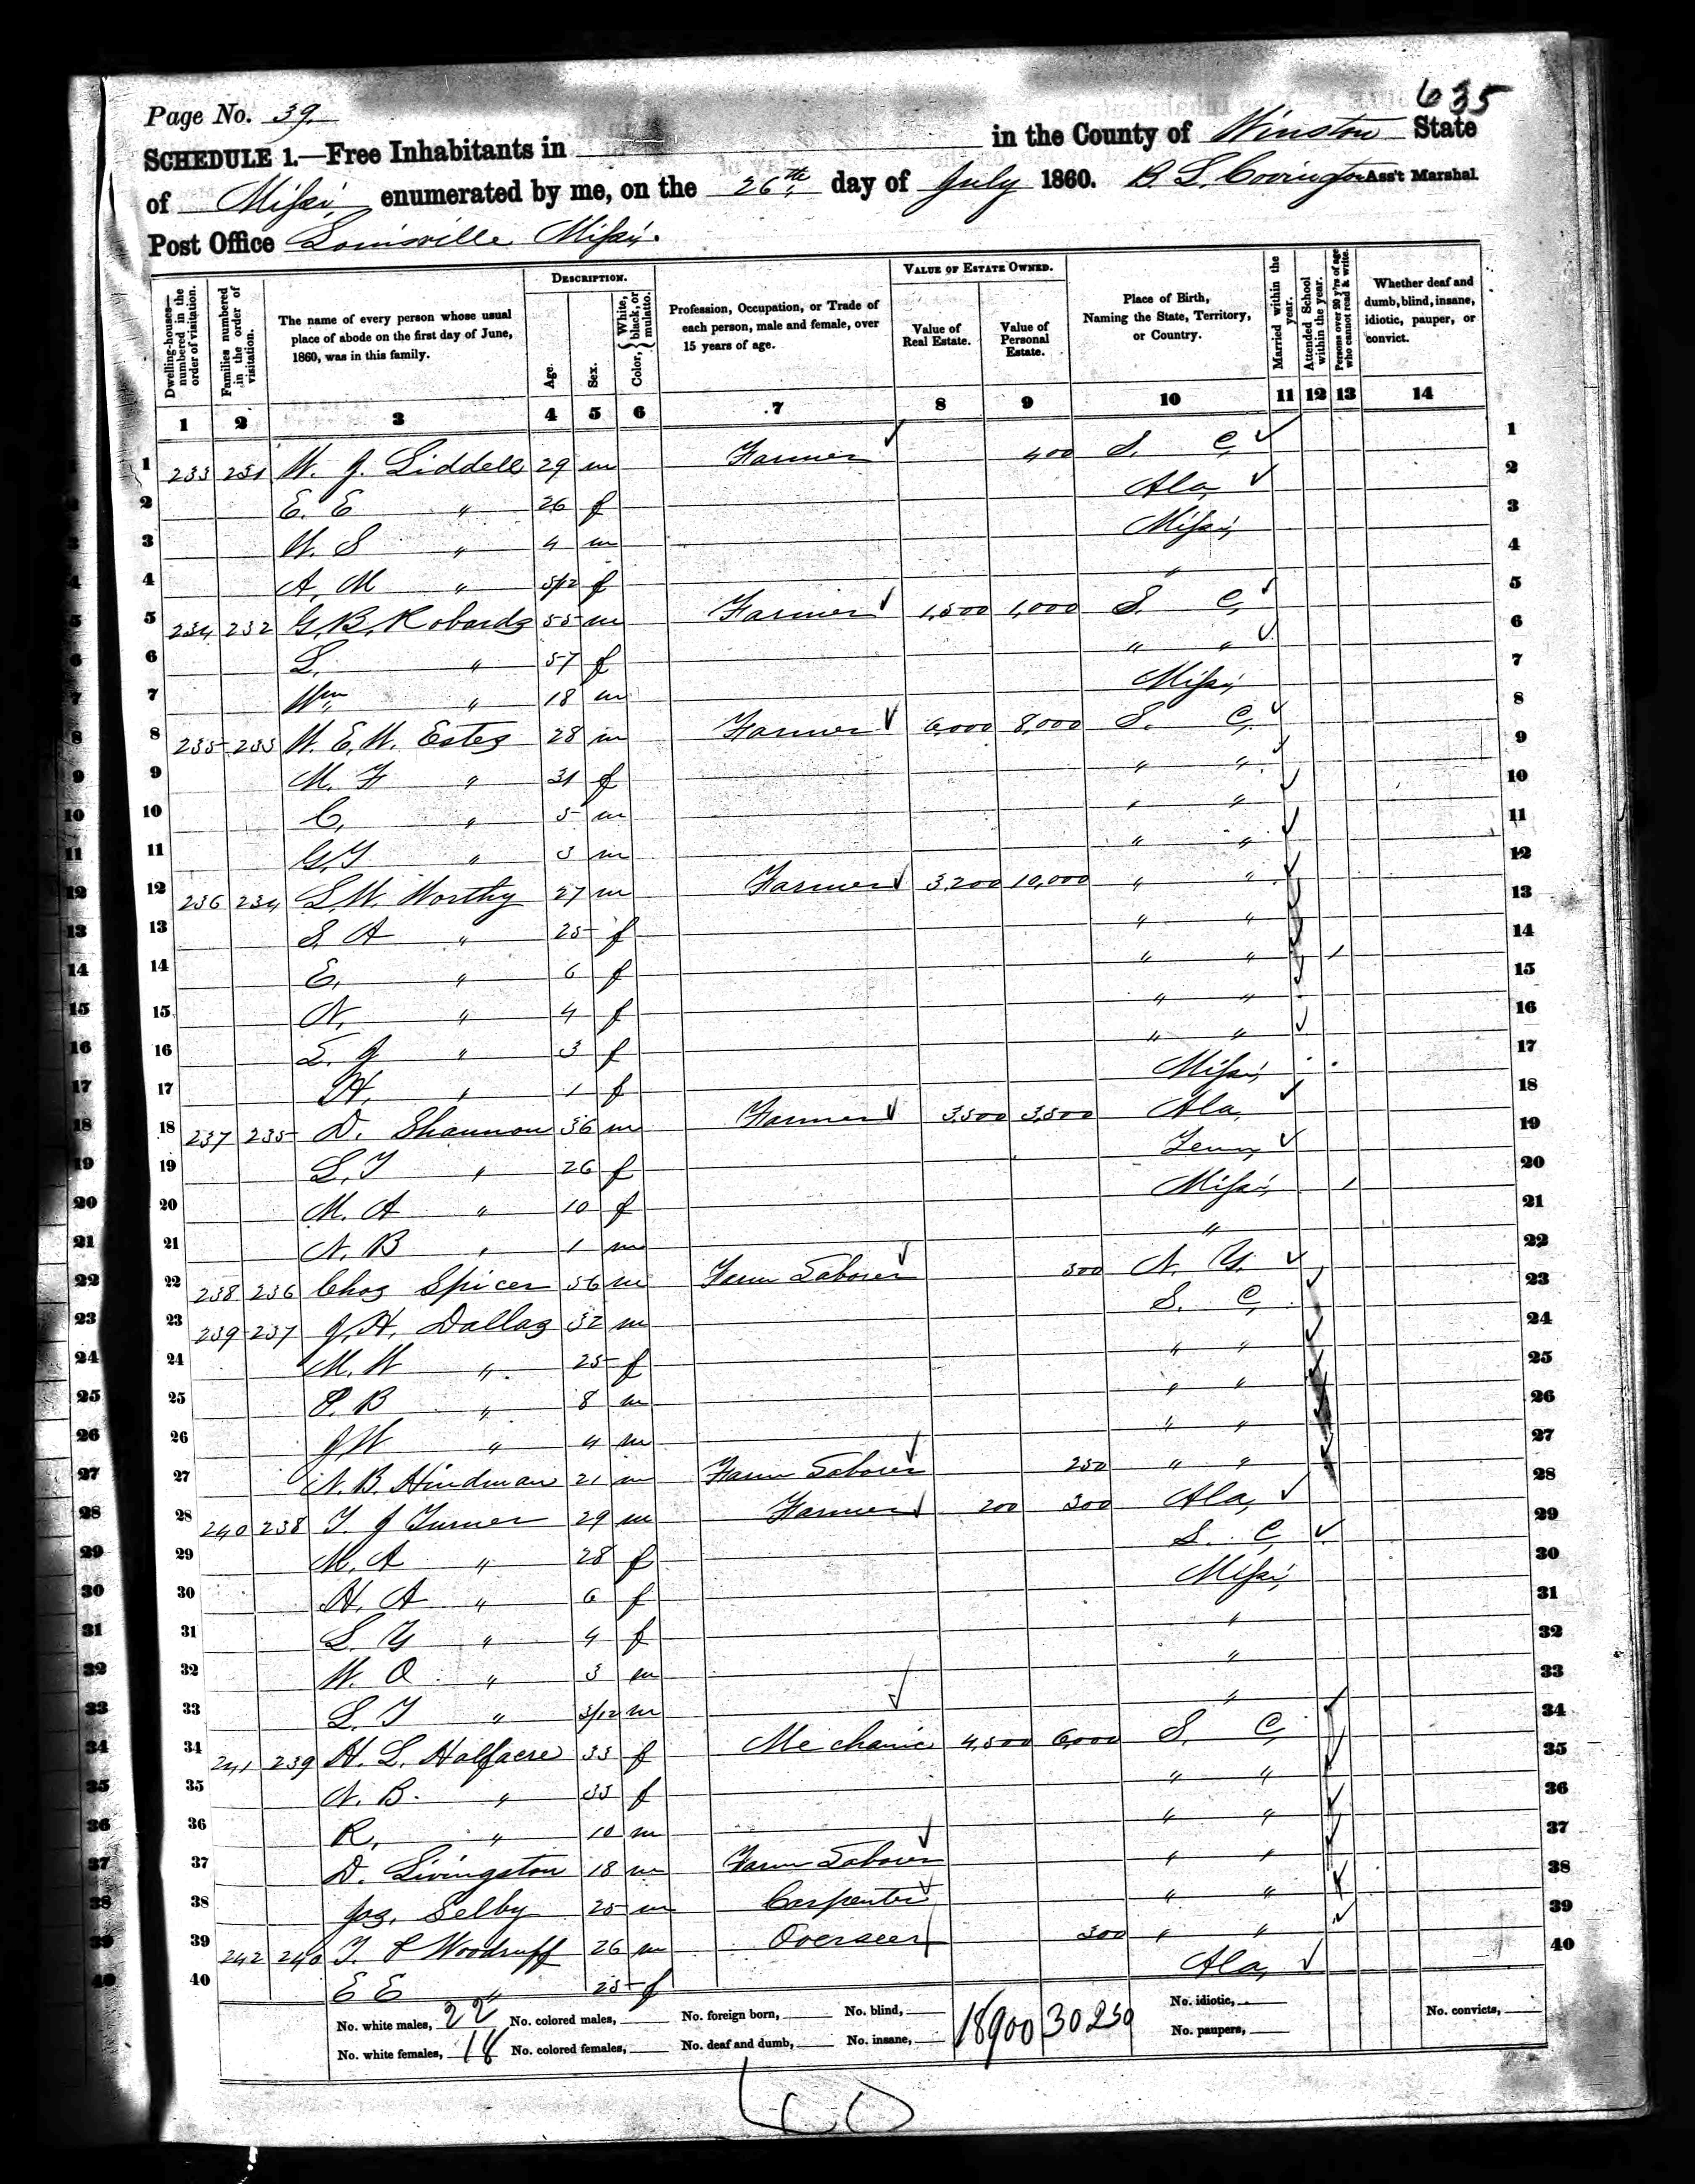 635
Page No. 39.
SCHEDULE 1.—Free Inhabitants in in the County of Winston State
of Missi, enumerated by me, on the 26th day of July 1860. B. L. Covington Ass't Marshal
Post Office Louisville Missi.
Dwelling-houses—numbered in the order of visitation. Families numbered in the order of visitation. The name of every person whose usual place of abode on the first day of June, 1860, was in this family. DESCRIPTION. Age. Sex. Color, { White, black, or mulatto. Profession, Occupation, or Trade of each person, male and female, over 15 years of age. VALUE OF ESTATE OWNED. Value of Real Estate. Value of Personal Estate. Place of Birth, Naming the State, Territory, or Country. Married within the year. Attended School within the year. Persons over 20 y'rs of age who cannot read & write. Whether deaf and dumb, blind, insane, idiotic, pauper, or convict.
1 2 3 4 5 6 7 8 9 10 11 12 13 14
1 233 231 W. J. Liddell 29 m Farmer 400 S. C. 1
2 E. E " 26 f Ala, 2
3 W. S " 4 m Missi, 3
4 A. M " 5/12 f " 4
5 234 232 G. B. Robards 55 m Farmer 1,500 1,000 S. C, 5
6 L. " 57 f " " 6
7 Wm " 18 m Missi, 7
8 235 233 W. E. W. Estes 28 m Farmer 6,000 8,000 S. C, 8
9 M. F " 31 f " " 9
10 C, " 5 m " " 10
11 G. T " 3 m " " 11
12 236 234 L. W. Worthy 27 m Farmer 3,200 10,000 " " 12
13 S. A " 25 f " " 13
14 E, " 6 f " " / 14
15 N, " 4 f " " 15
16 L. J " 3 f " " 16
17 H, " 1 f Missi, 17
18 237 235 D. Shannon 36 m Farmer 3,500 3,500 Ala, 18
19 L. T " 26 f Tenn, 19
20 M. A " 10 f Missi, / 20
21 N. B " 1 m " 21
22 238 236 Chas Spicer 56 m Farm Laborer 300 N. Y. 22
23 239 237 J. H. Dallas 32 m S. C, 23
24 M. W " 25 f " " 24
25 P. B " 8 m " " 25
26 J W " 4 m " " 26
27 N. B. Hindman 21 m Farm Laborer 250 " " 27
28 240 238 T. J Turner 29 m Farmer 200 300 Ala, 28
29 M. A " 28 f S. C, 29
30 H. A " 6 f Missi, 30
31 L. Y " 4 f " 31
32 W. O " 3 m " 32
33 L. T " 3/12 m " 33
34 241 239 H. L. Halfacre 33 f Mechanic 4,500 6,000 S. C, 34
35 N. B. " 33 f " " 35
36 R, " 10 m " " 36
37 D. Livingston 18 m Farm Laborer " " 37
38 Jas. Selby 25 m Carpenter " " 38
39 242 240 T. P Woodruff 26 m Overseer 300 " " 39
40 E E " 25 f Ala, 40
No. white males, 22 No. colored males, No. foreign born, No. blind, 18900 30250 No. idiotic, No. convicts,
No. white females, 18 No. colored females, No. deaf and dumb, No. insane, No. paupers,